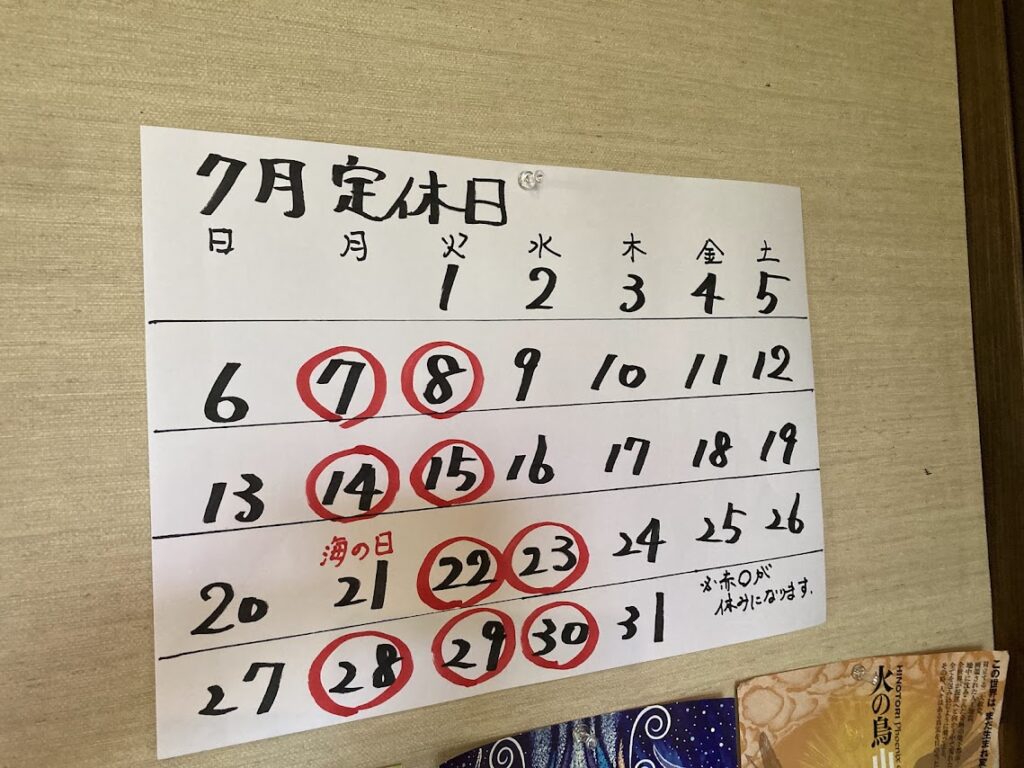 7月定休日
日 月 火 水 木 金 土
1 2 3 4 5
6 7 8 9 10 11 12
13 14 15 16 17 18 19
海の日
20 21 22 23 24 25 26
※赤○が
休みになります.
27 28 29 30 31
火の鳥
HINOTORI Phoenix
この世界は、まだ生まれ変